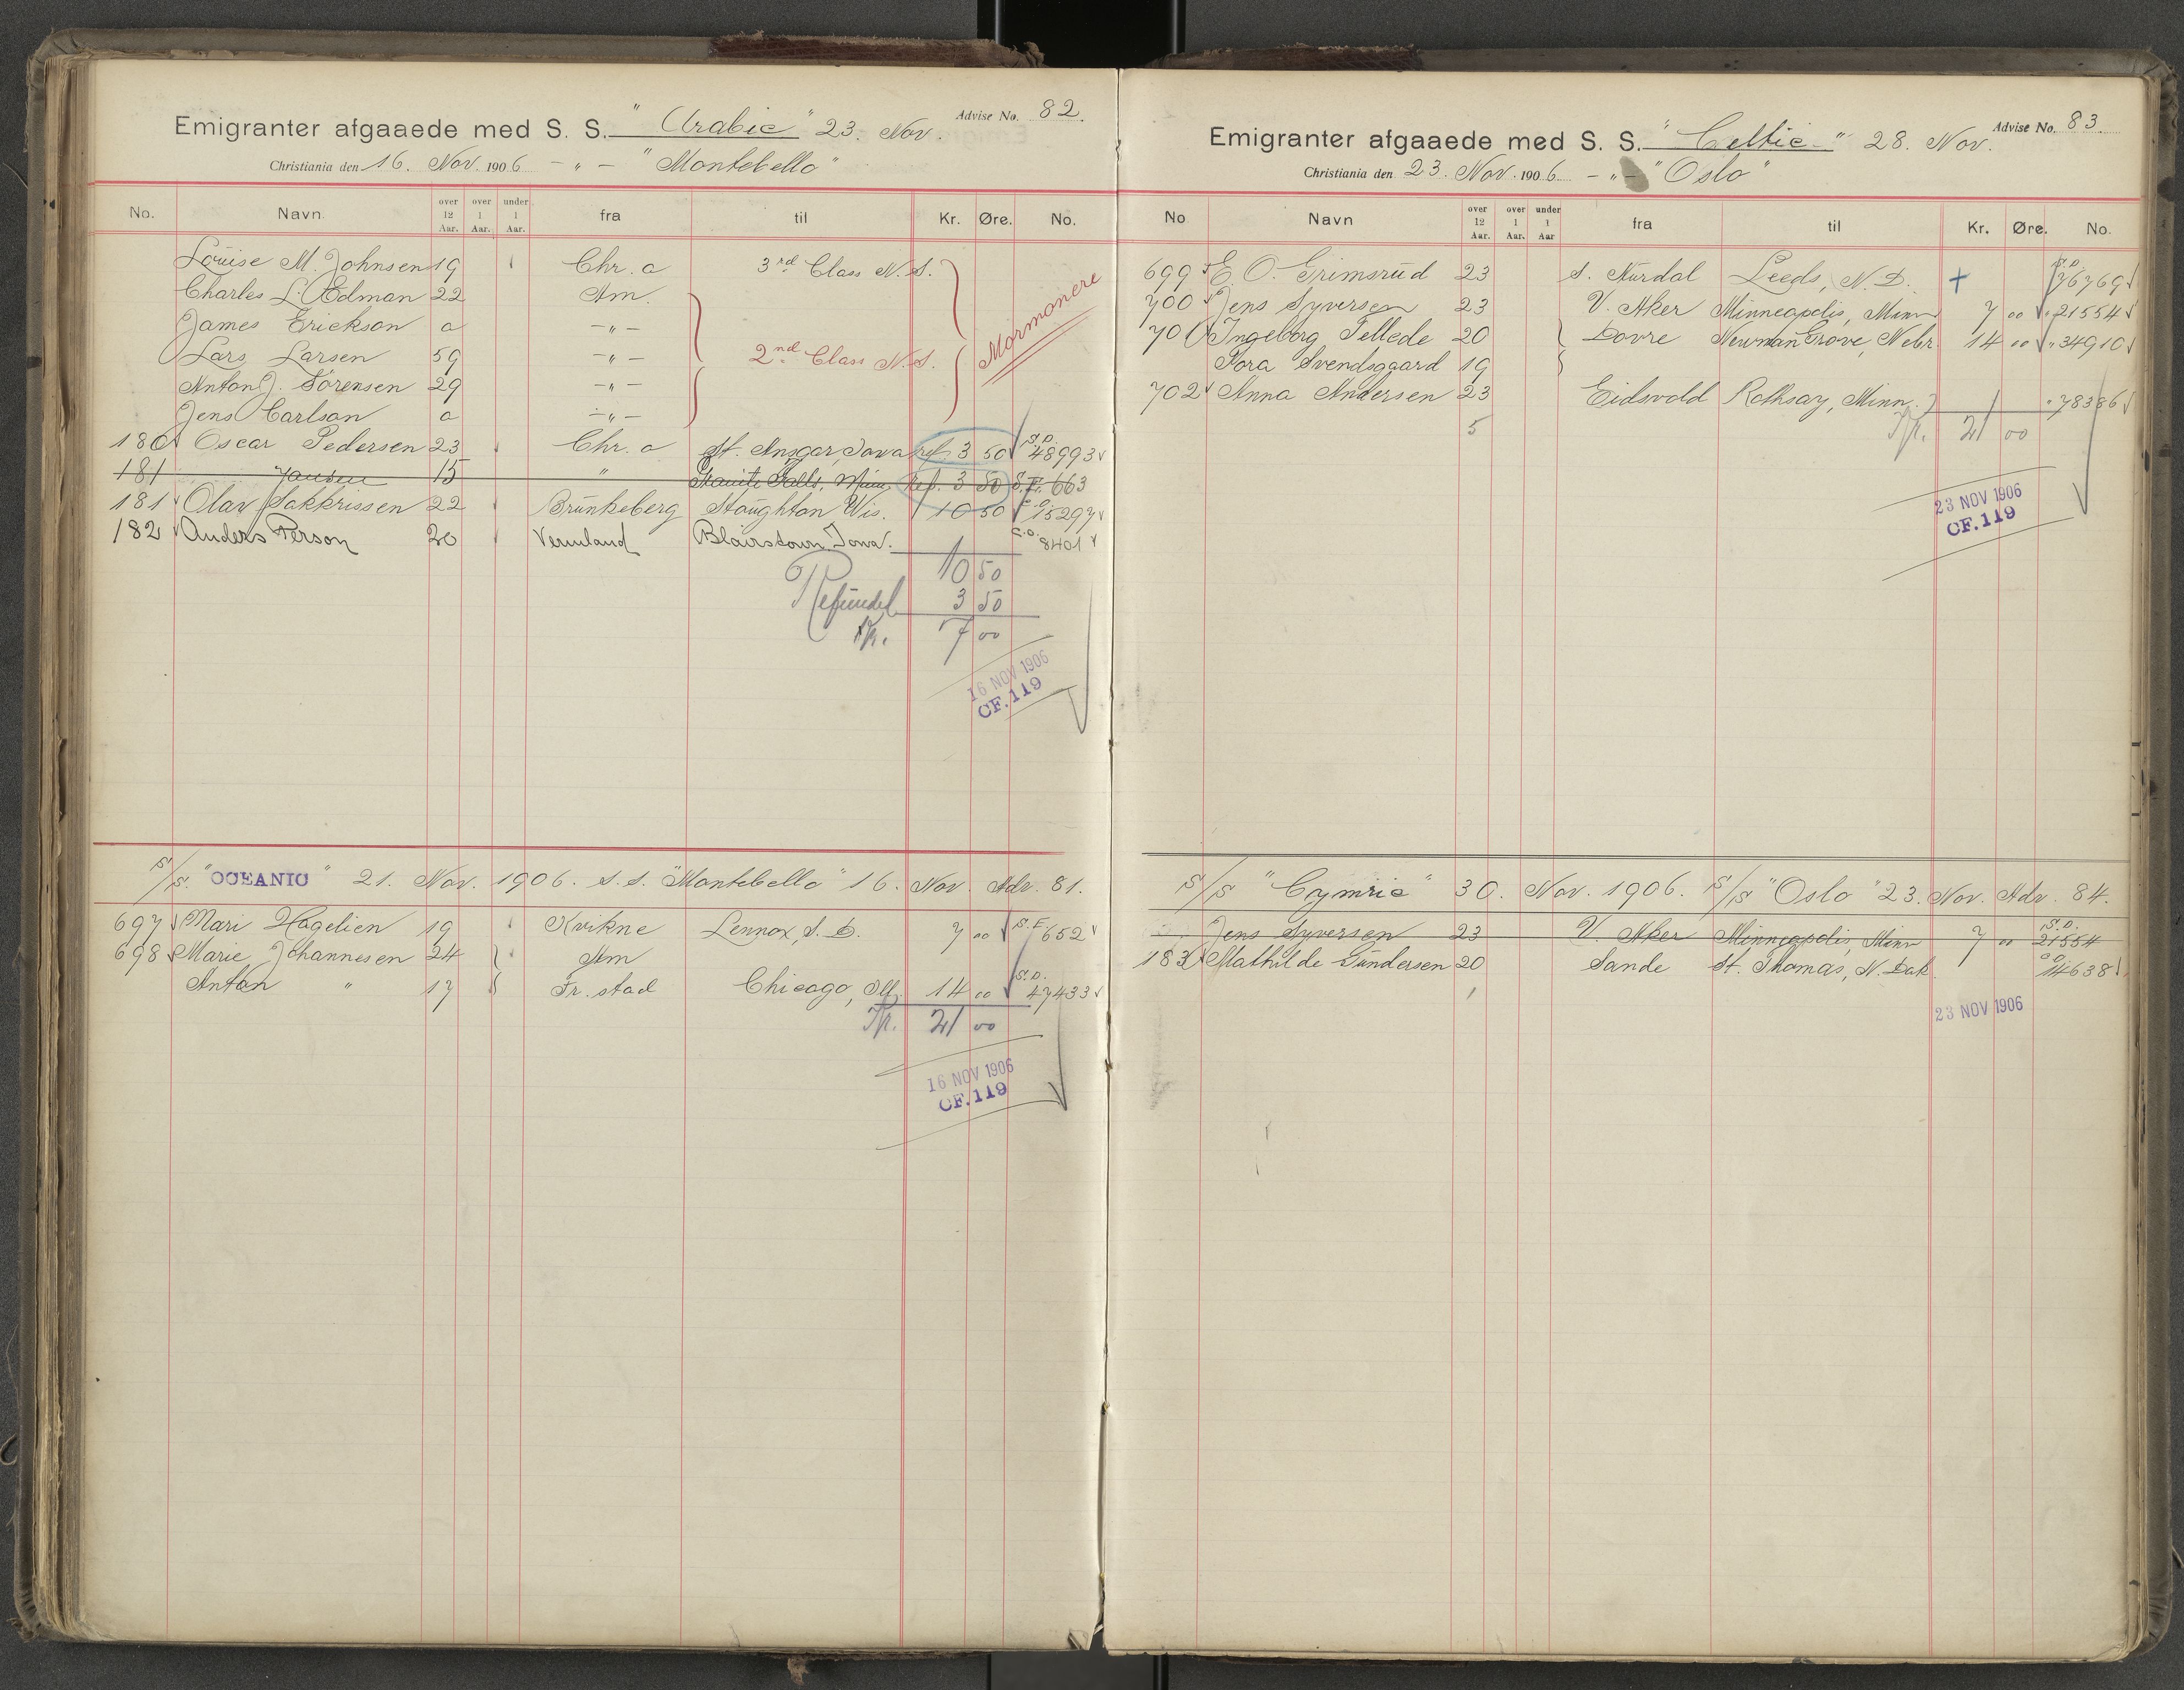 Emigranter afgaaede med S. S. "Arabic" 23. Nov. Advise No. 82.
Christiania den 16. Nov. 1906 - " - "Montebello"
No. Navn. over 12 Aar. over 1 Aar. under 1 Aar. fra til Kr. Øre. No.
Louise M. Johnsen 19 Chr. a 3rd Class N. S.
Charles L. Edman 22 Am.
James Erickson a - " -
Lars Larsen 59 - " - 2nd Class N. S. Mormonere
Anton J. Sørensen 29 - " -
Jens Carlson a - " -
180 Oscar Pedersen 23 Chr. a St. Ansgar, Iowa ref. 3 50 S.O. 48993
181 Jansen 15 " Granite Falls, Minn. Ref. 3 50 S.F. 663
181 Olav Sakkrissen 22 Brunkeberg Stoughton Wis. 10 50 C.O. 15297
182 Anders Person 20 Vermland Blairstown Iowa. C.O. 8401
10 50
Refunded 3 50
Kr. 7 00
16 NOV 1906
CF. 119
S/S. "OCEANIC" 21. Nov. 1906. S. S. "Montebello" 16. Nov. Adv. 81.
697 Mari Hagelien 19 Kvikne Lennox, S. D. 7 00 S.F. 652
698 Marie Johannesen 24 Am
Anton " 17 Fr. stad Chicago, Ill. 14 00 S.O. 47433
Kr. 21 00
16 NOV 1906
CF. 119
Emigranter afgaaede med S. S. "Celtic" 28. Nov. Advise No. 83.
Christiania den 23. Nov. 1906 - " - "Oslo"
No Navn over 12 Aar. over 1 Aar. under 1 Aar fra til Kr. Øre. No.
699 E. O. Grimsrud 23 S. Aurdal Leeds, N. D. + S.O. 76769
700 Jens Syversen 23 V. Aker Minneapolis, Minn 7 00 " 21554
701 Ingeborg Tellede 20 Dovre Newman Grove, Nebr. 14 00 " 34910
Tora Svendsgaard 19
702 Anna Andersen 23 Eidsvold Rothsay, Minn. " 78386
5 Kr. 21 00
23 NOV 1906
CF. 119
S/S "Cymric" 30. Nov. 1906. S/S "Oslo" 23. Nov. Adv. 84.
Jens Syversen 23 V. Aker Minneapolis, Minn 7 00 S.O. 21554
183 Mathilde Gundersen 20 Sande St. Thomas, N. Dak C.O. 14638
1
23 NOV 1906